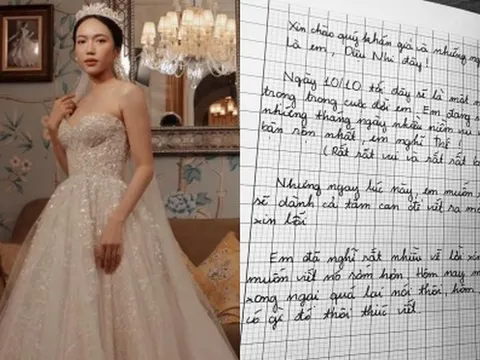 Xin chào quý khán giả và những
Là em, Diệu Nhi đây!
Ngày 10/10 tới đây sẽ là một
trọng trong cuộc đời em. Em đang
những tháng ngày nhiều niềm vui
bận rộn nhất, em nghĩ thế!
(Rất rất vui và rất rất
Nhưng ngay lúc này, em muốn
sẽ dành cả tâm can để viết ra
xin lỗi
Em đã nghĩ rất nhiều về lời
muốn viết nó sớm hơn. Hôm nay
xong ngại quá lại nói thôi, hôm
có gì đó thôi thúc viết